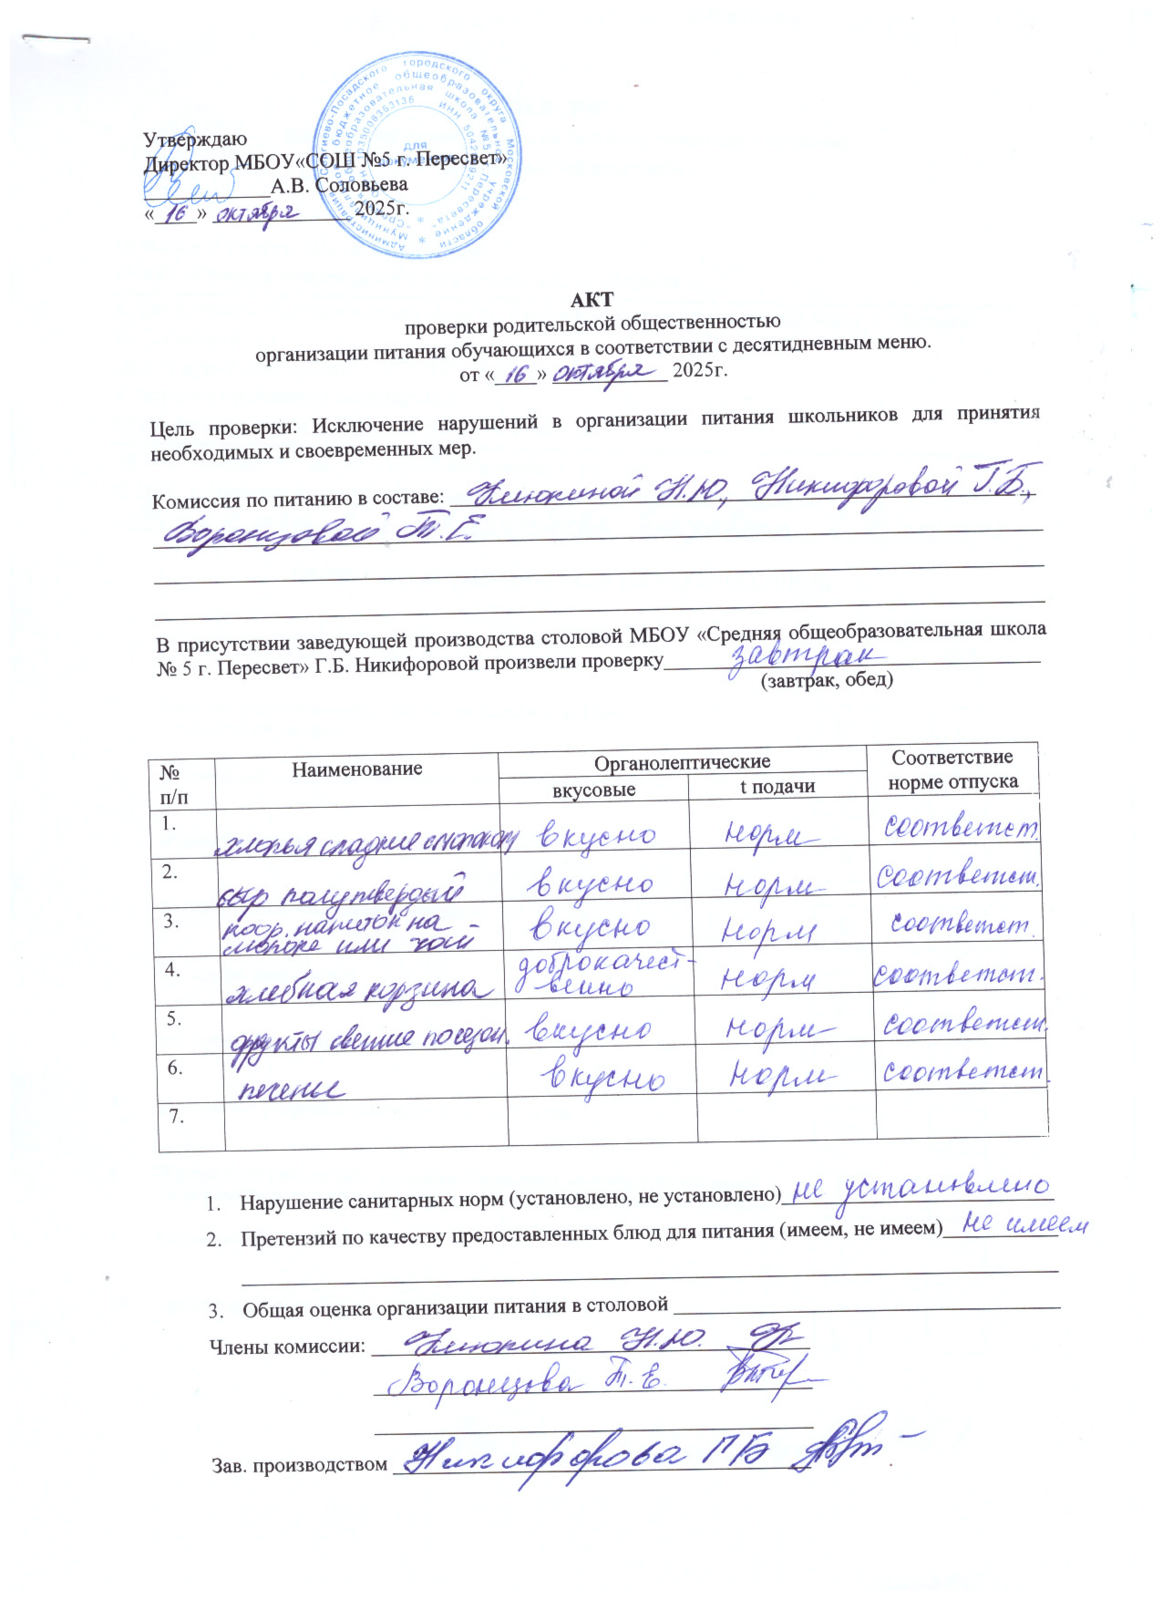 Утверждаю
Директор МБОУ«СОШ №5 г. Пересвет»
____________А.В. Соловьева
«16» октября 2025г.
для
АКТ
проверки родительской общественностью
организации питания обучающихся в соответствии с десятидневным меню.
от «16» октября 2025г.
Цель проверки: Исключение нарушений в организации питания школьников для принятия
необходимых и своевременных мер.
Комиссия по питанию в составе: Клюкиной Н.Ю., Никифоровой Г.Б.,
Воронцовой Т.Е.
В присутствии заведующей производства столовой МБОУ «Средняя общеобразовательная школа
№ 5 г. Пересвет» Г.Б. Никифоровой произвели проверку завтрак
(завтрак, обед)
№ п/п Наименование Органолептические Соответствие норме отпуска
вкусовые t подачи
1. хлопья сладкие с молоком вкусно норм соответст.
2. сыр полутвердый вкусно норм соответст.
3. напиток на молоке или чай вкусно норм соответст.
4. хлебная корзина доброкачест-венно норм соответст.
5. фрукты свежие посезон. вкусно норм соответст.
6. печенье вкусно норм соответст.
7.
1. Нарушение санитарных норм (установлено, не установлено) не установлено
2. Претензий по качеству предоставленных блюд для питания (имеем, не имеем) не имеем
3. Общая оценка организации питания в столовой
Члены комиссии: Клюкина Н.Ю.
Воронцова Т.Е.
Зав. производством Никифорова Г.Б.